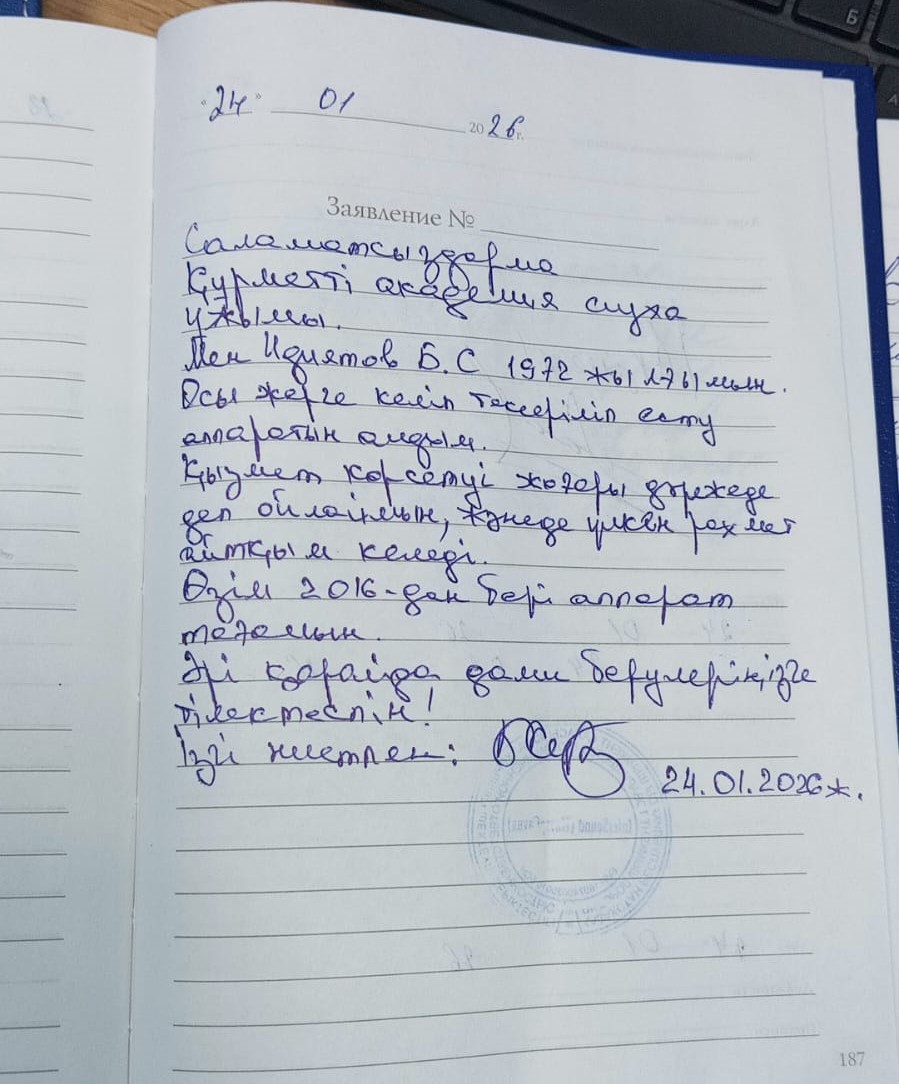 "24" 01 2026 г.
Заявление №
Саламатсыздарма
Құрметті академия слуха
ұжымы.
Мен Идиятов Б.С 1972 жылғымын.
Осы жерге келіп тексеріліп есту
аппаратын алдым.
Қызмет корсетуі жоғары дәрежеде
деп ойлаймын, жәнеде үлкен рахмет
айтқым келеді.
Өзім 2016-дан бері аппарат
тағамын.
Әрі қарайда дами берулеріңізге
тілектеспін!
Ізгі ниетпен:
24.01.2026ж.
187
Б